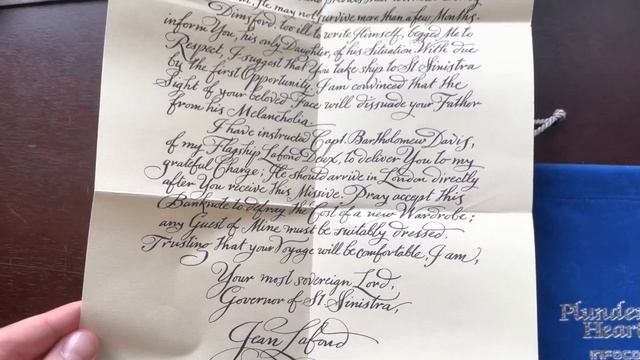 He may not survive more than a few Months.
Dimsford, too ill to write Himself, begged Me to
inform You, his only Daughter, of his Situation. With due
Respect, I suggest that You take ship to St Sinistra
by the first Opportunity. I am convinced that the
Sight of your beloved Face will dissuade your Father
from his Melancholia.
I have instructed Capt. Bartholomew Davis,
of my Flagship Lafond Deux, to deliver You to my
grateful Charge; He should arrive in London directly
after You receive this Missive. Pray accept this
Banknote to defray the Cost of a new Wardrobe;
any Guest of Mine must be suitably dressed.
Trusting that your Voyage will be comfortable, I am,
Your most sovereign Lord,
Governor of St Sinistra,
Jean Lafond
Plunder
Hear
INFOCO